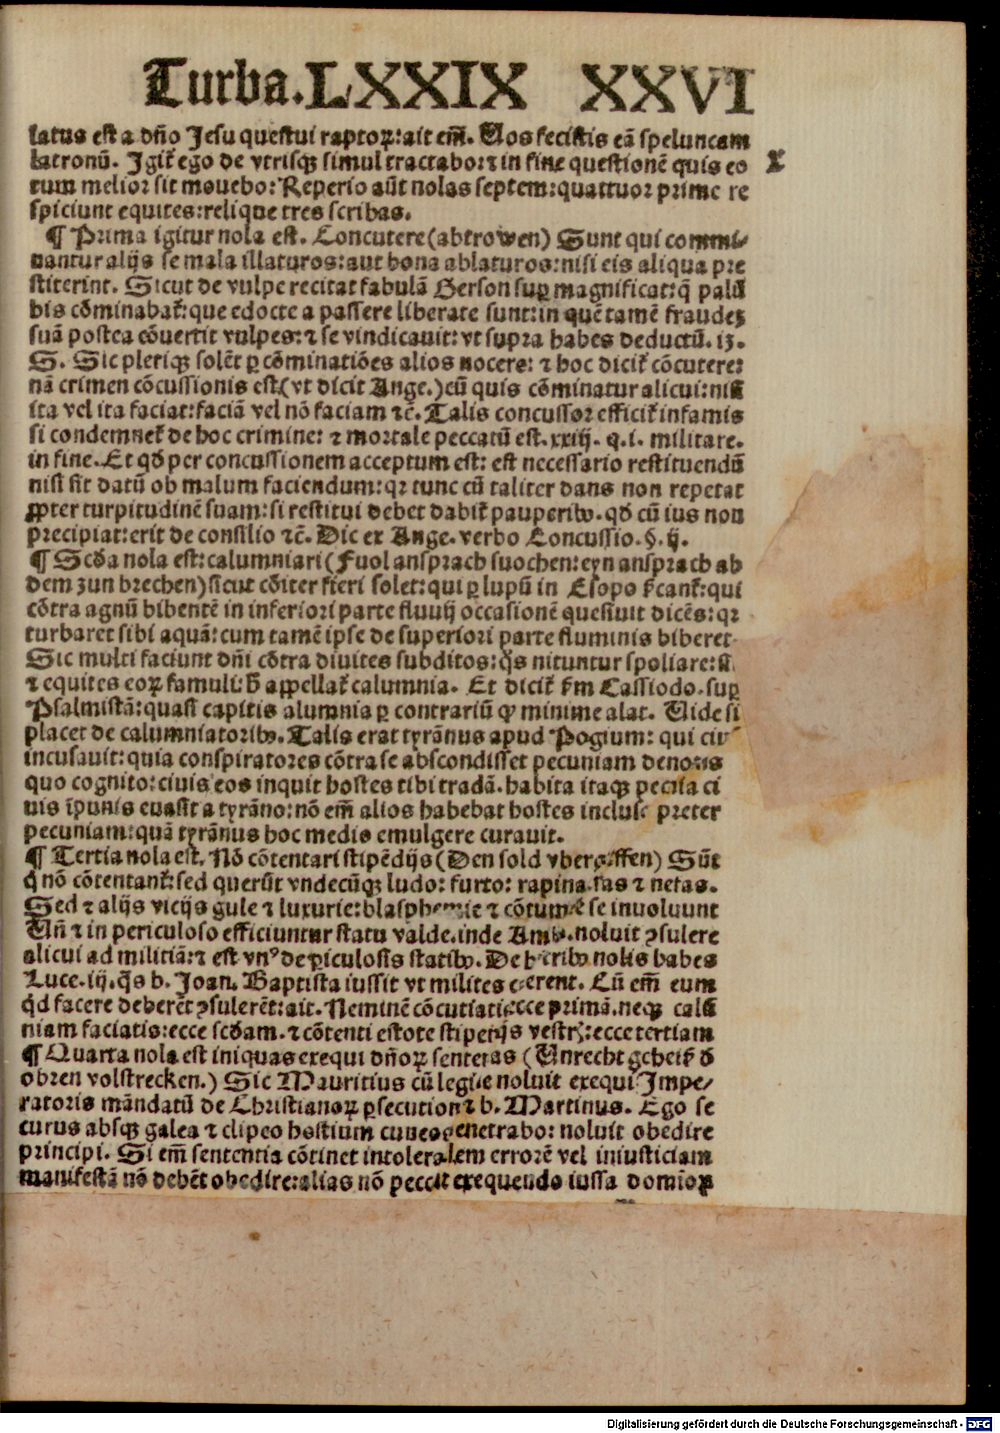 Turba. LXXIX XXVI
latus est a dño Jesu questui raptoꝝ: ait em̃. Vos fecistis eã speluncam
latronũ. Igit̃ ego de vtrisqꝫ simul tractabo: ⁊ in fine questionẽ quis eo
rum melior sit mouebo: Reperio aũt nolas septem: quattuor prime re
spiciunt equites: relique tres scribas.
X
¶ Prima igitur nola est. Concutere (abtrowen) Sunt qui commi⸗
nantur alijs se mala illaturos: aut bona ablaturos: nisi eis aliqua pre
stiterint. Sicut de vulpe recitat fabulã Gerson suꝑ magnificat: q̃ palũ
bis cõminabat̃: que edocte a passere liberate sunt: in quẽ tamẽ fraudeꝫ
suã postea cõuertit vulpes: ⁊ se vindicauit: vt supra habes deductũ. 13.
S. Sic pleriqꝫ solẽt ꝑ cõminatiões alios nocere: ⁊ hoc dicit̃ cõcutere:
nã crimen cõcussionis est (vt dicit Ange.) cũ quis cõminatur alicui: nisi
ita vel ita faciat: faciã vel nõ faciam ⁊c̃. Talis concussor efficit̃ infamis
si condemnet̃ de hoc crimine: ⁊ mortale peccatũ est. xxiij. q. i. militare.
in fine. Et qð per concussionem acceptum est: est necessario restituendũ
nisi sit datũ ob malum faciendum: qꝛ tunc cũ taliter dans non repetat
ꝓpter turpitudinẽ suam: si restitui debet dabit̃ pauperibꝰ. qð cũ ius non
precipiat: erit de consilio ⁊c̃. Dic ex Ange. verbo Concussio. §. ij.
¶ Scða nola est: calumniari (Fuol ansprach suochen: eyn ansprach ab
dem zun brechen) sicut cõiter fieri solet: qui ꝑ lupũ in Esopo ẜcant̃: qui
cõtra agnũ bibentẽ in inferiori parte fluuij occasionẽ quesiuit dicẽs: qꝛ
turbaret sibi aquã: cum tamẽ ipse de superiori parte fluminis biberet
Sic multi faciunt dñi cõtra diuites subditos: q̃s nituntur spoliare:
⁊ equites eoꝝ famuli: h̃ appellat̃ calumnia. Et dicit̃ ẜm Cassiodo. suꝑ
Psalmistã: quasi capitis alumnia ꝑ contrariũ ꝙ minime alat. Vide si
placet de calumniatoribꝰ. Talis erat tyrãnus apud Pogium: qui
incusauit: quia conspiratores cõtra se abscondisset pecuniam
quo cognito: ciuis eos inquit hostes tibi tradã. habita itaqꝫ ci
uis ĩpunis euasit a tyrãno: nõ em̃ alios habebat hostes preter
pecuniam: quã tyrãnus hoc medio emulgere curauit.
¶ Tertia nola est. Nõ cõtentari stipẽdijs (Den sold ) Sũt
q̃ nõ cõtentant̃: sed querũt vndecũqꝫ ludo: furto: rapina. fas ⁊ nefas.
Sed ⁊ alijs vicijs gule ⁊ luxurie: ⁊ se inuoluunt
Vñ ⁊ in periculoso efficiuntur statu valde. inde Amb. noluit ꝯsulere
alicui ad militiã: ⁊ est vnꝰ de ꝑiculosis statibꝰ. De nolis habes
Luce. iij. q̃s b. Joan. Baptista iussit vt milites Cũ em̃ eum
q̃d facere deberẽt ꝯsulerẽt: ait. Neminẽ cõcutiatis: ecce primã. neqꝫ calũ
niam faciatis: ecce scðam. ⁊ cõtenti estote vestris: ecce tertiam
¶ Quarta nola est iniquas exequi dñoꝝ (Vnrecht
obren volstrecken.) Sic Mauritius cũ noluit exequi Impe⸗
ratoris mãndatũ de Christianoꝝ ꝑsecutione ⁊ b. Martinus. Ego se
curus absqꝫ galea ⁊ clipeo hostium penetrabo: noluit obedire
principi. Si em̃ sententia cõtinet errorẽ vel iniusticiam
manifestã nõ debẽt obedire: alias nõ peccat exequendo iussa domioꝝ
Digitalisierung gefördert durch die Deutsche Forschungsgemeinschaft - DFG